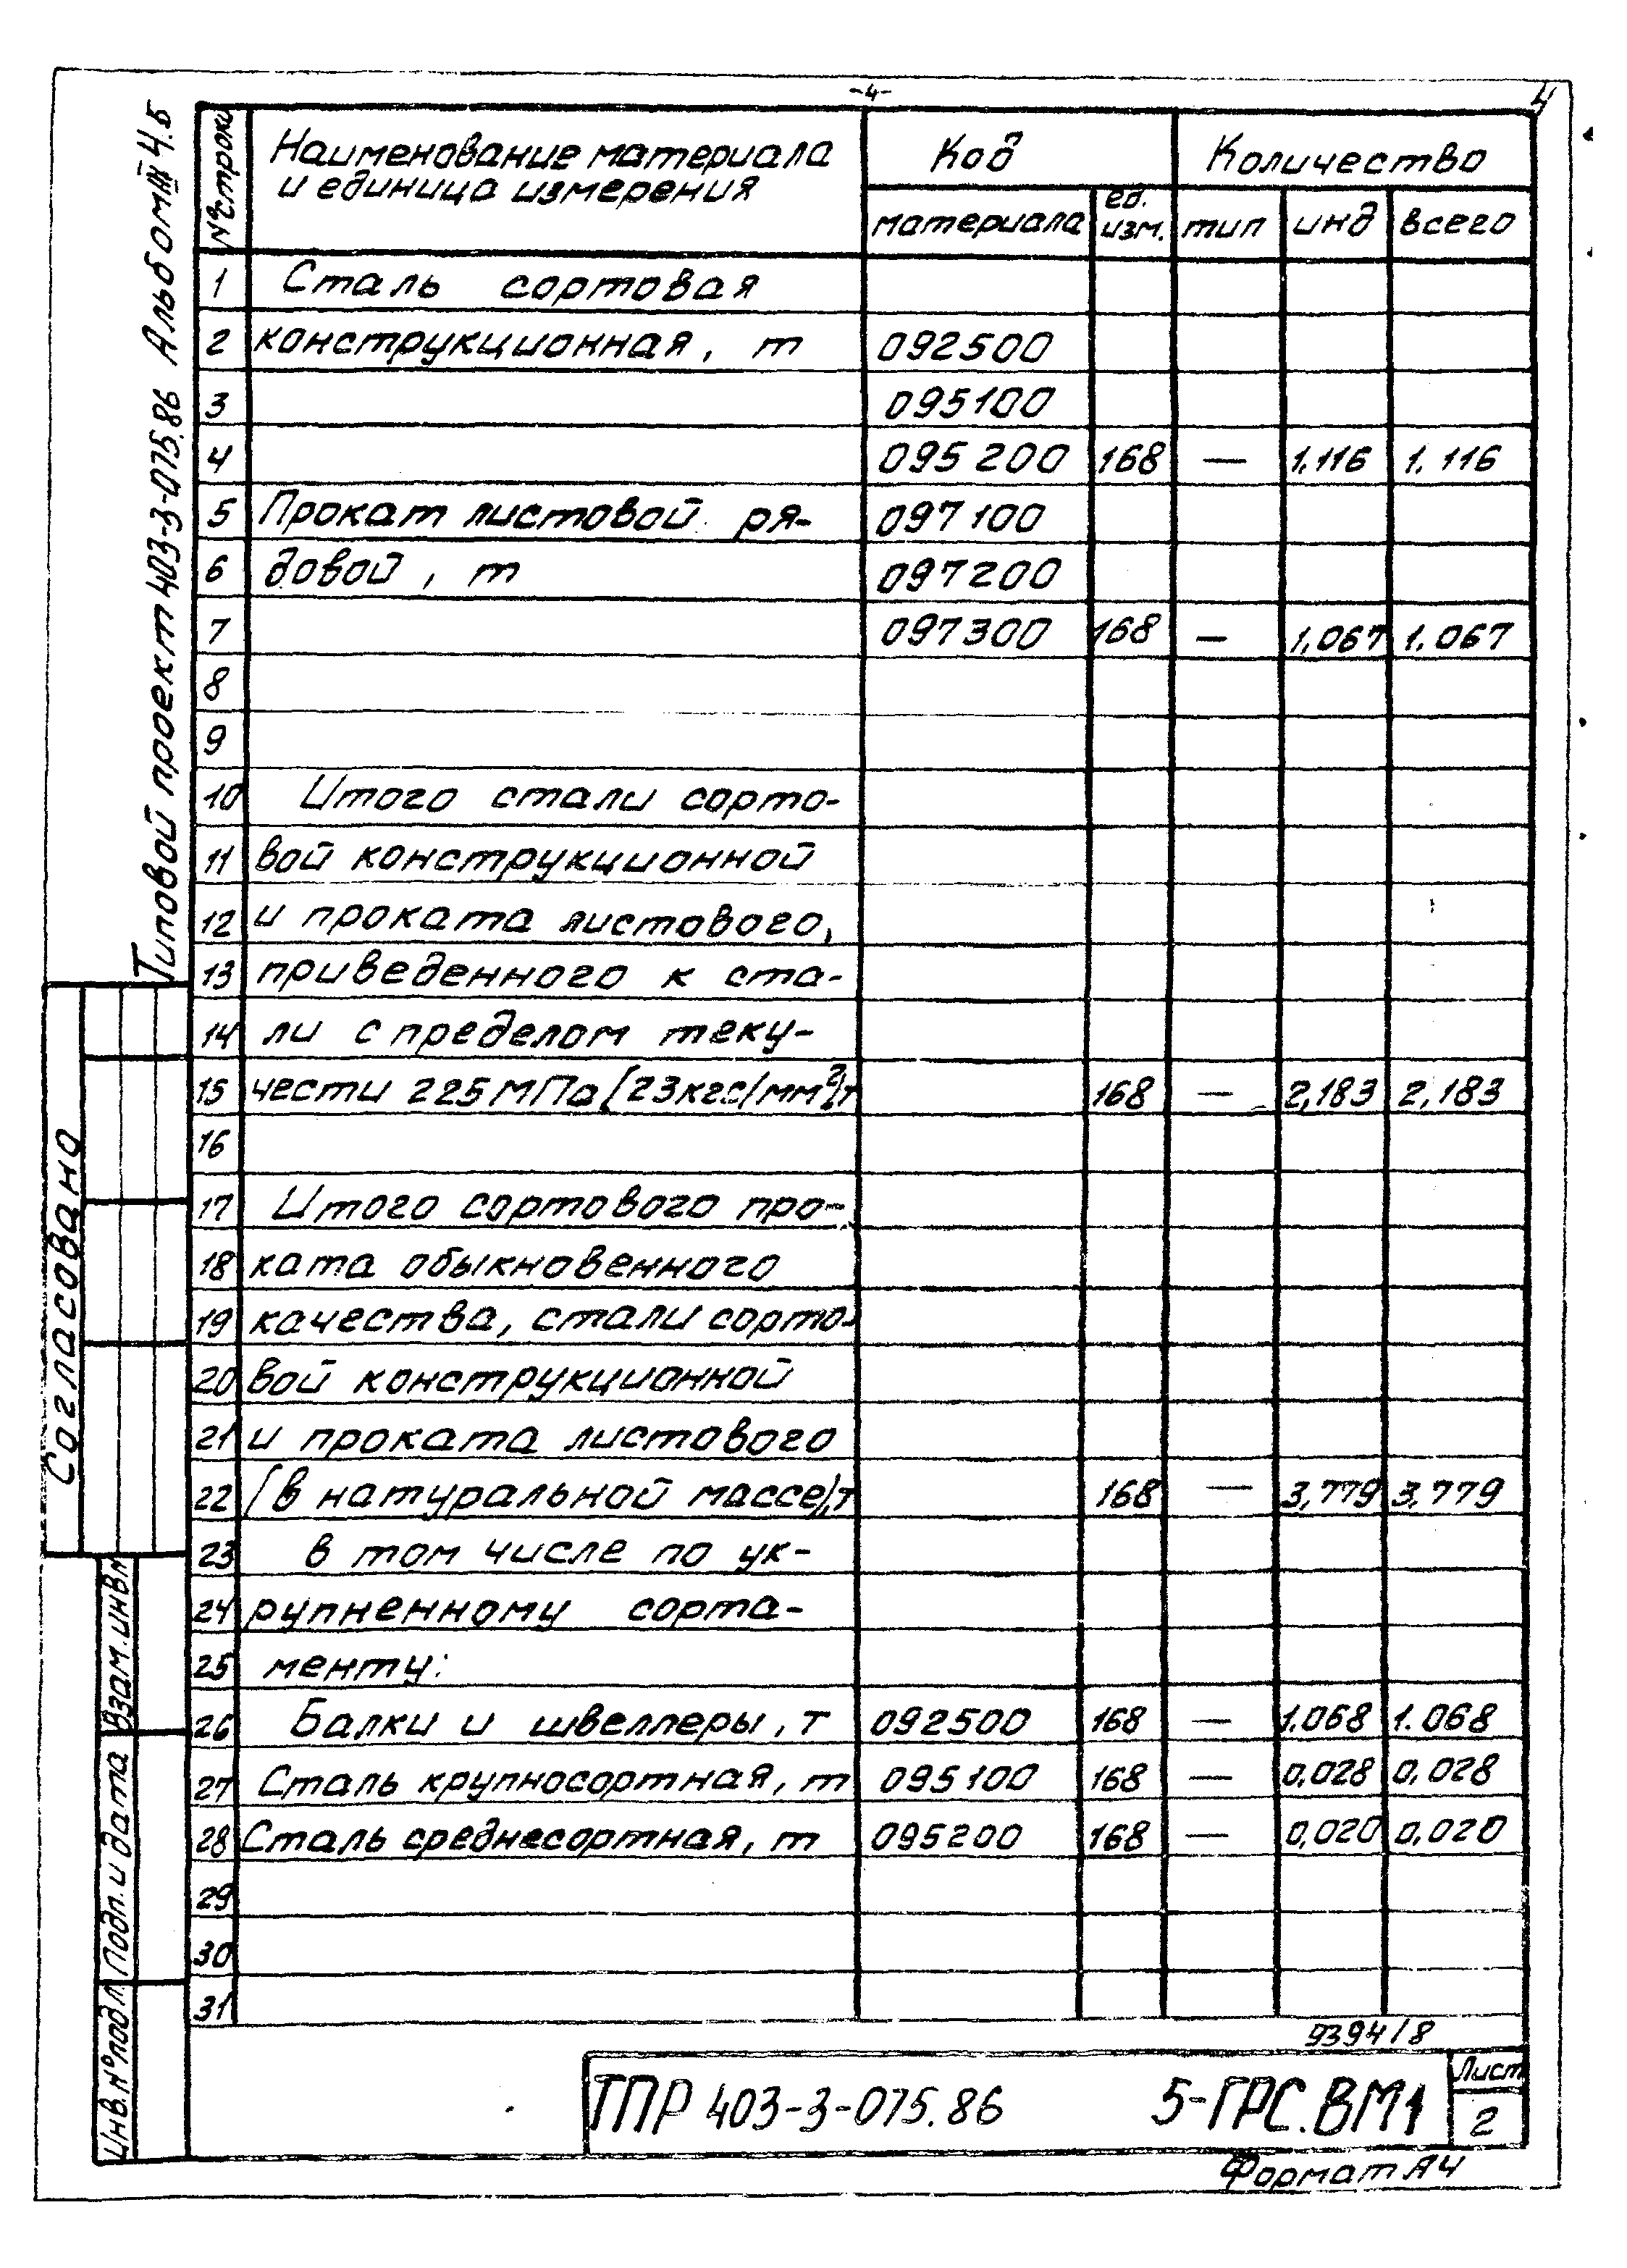 -4-
4
Типовой проект 403-3-075.86 Альбом 4.5
№ строки
Наименование материала и единица измерения
Код
Количество
материала
ед. изм.
тип
инд
всего
1 Сталь сортовая
2 конструкционная, т 092500
3 095100
4 095200 168 — 1.116 1.116
5 Прокат листовой ря- 097100
6 довой, т 097200
7 097300 168 — 1,067 1.067
8
9
10 Итого стали сорто-
11 вой конструкционной
12 и проката листового,
13 приведенного к ста-
14 ли с пределом теку-
15 чести 225 МПа (23кгс/мм²)т 168 — 2,183 2,183
16
17 Итого сортового про-
18 ката обыкновенного
19 качества, стали сорто-
20 вой конструкционной
21 и проката листового
22 (в натуральной массе),т 168 — 3,779 3,779
23 в том числе по ук-
24 рупненному сорта-
25 менту:
26 Балки и швеллеры, т 092500 168 — 1.068 1.068
27 Сталь крупносортная, т 095100 168 — 0,028 0,028
28 Сталь среднесортная, т 095200 168 — 0,020 0,020
29
30
31
Согласовано
Взам. инв. №
Подп. и дата
Инв. № подл.
9394/8
ТПР 403-3-075.86
5-ГРС.ВМ1
Лист
2
Формат А4